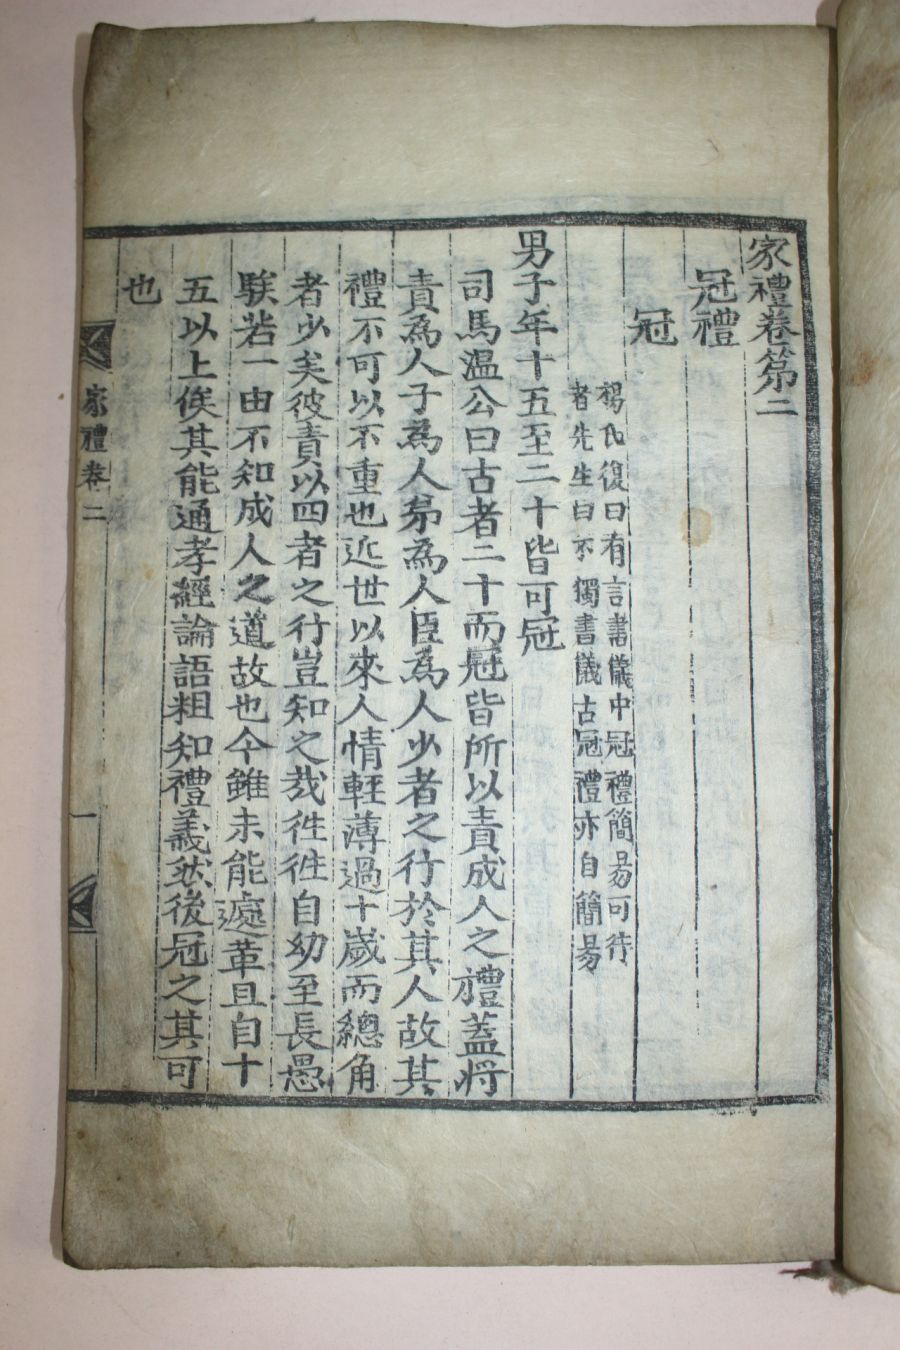 家禮卷第二
冠禮
冠
楊氏復曰有言書儀中冠禮簡易可行
者先生曰不獨書儀古冠禮亦自簡易
男子年十五至二十皆可冠
司馬溫公曰古者二十而冠皆所以責成人之禮蓋將
責為人子為人弟為人臣為人少者之行於其人故其
禮不可以不重也近世以來人情輕薄過十歲而總角
者少矣彼責以四者之行豈知之哉徃徃自幼至長愚
騃若一由不知成人之道故也今雖未能遽革且自十
五以上俟其能通孝經論語粗知禮義然後冠之其可
也
家禮卷二
一